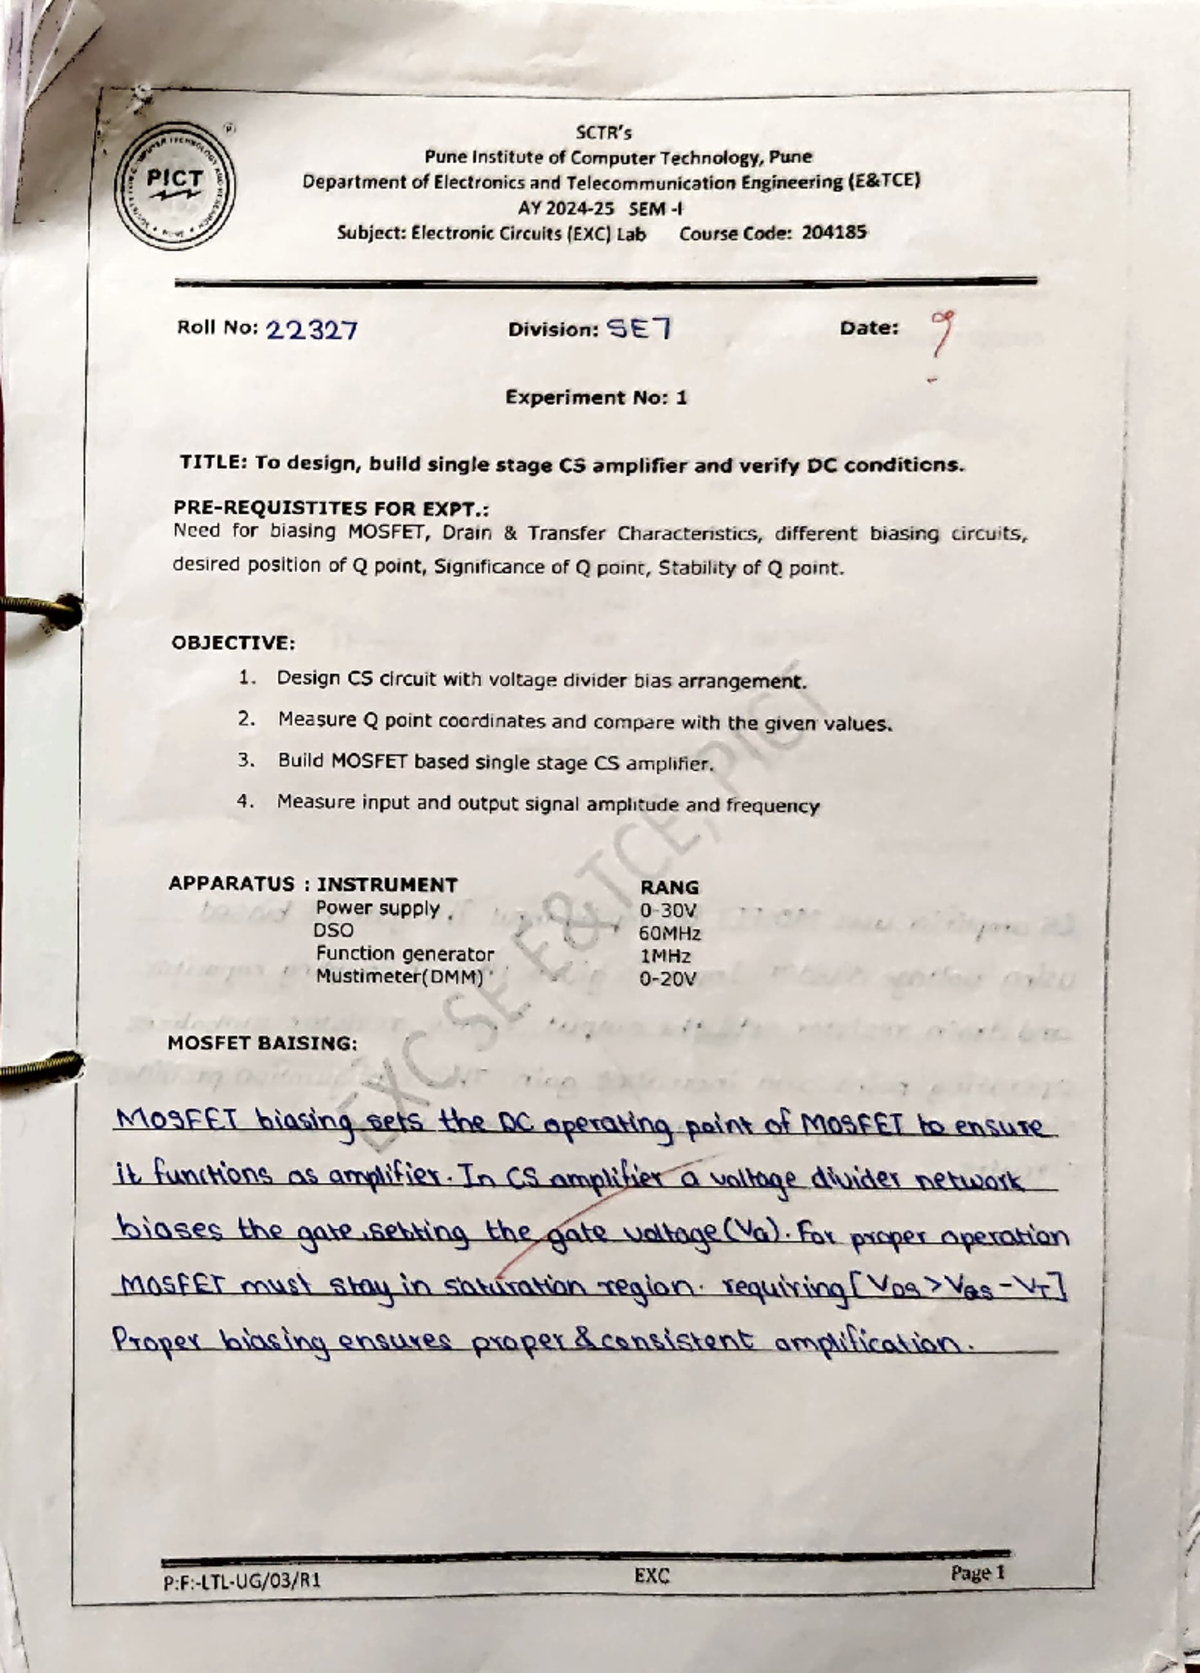 SCTR's
Pune Institute of Computer Technology, Pune
Department of Electronics and Telecommunication Engineering (E&TCE)
AY 2024-25 SEM -I
Subject: Electronic Circuits (EXC) Lab Course Code: 204185
PICT
Roll No: 22327 Division: SE7 Date: 9
Experiment No: 1
TITLE: To design, build single stage CS amplifier and verify DC conditions.
PRE-REQUISTITES FOR EXPT.:
Need for biasing MOSFET, Drain & Transfer Characteristics, different biasing circuits,
desired position of Q point, Significance of Q point, Stability of Q point.
OBJECTIVE:
1. Design CS circuit with voltage divider bias arrangement.
2. Measure Q point coordinates and compare with the given values.
3. Build MOSFET based single stage CS amplifier.
4. Measure input and output signal amplitude and frequency
APPARATUS : INSTRUMENT RANG
Power supply 0-30V
DSO 60MHz
Function generator 1MHz
Mustimeter(DMM) 0-20V
EXC SE E&TCE, PICT
MOSFET BAISING:
MOSFET biasing sets the DC operating point of MOSFET to ensure
it functions as amplifier. In CS amplifier a voltage divider network
biases the gate, setting the gate voltage (VG). For proper operation
MOSFET must stay in saturation region. requiring [VDS > VGS - VT]
Proper biasing ensures proper & consistent amplification.
P:F:-LTL-UG/03/R1 EXC Page 1